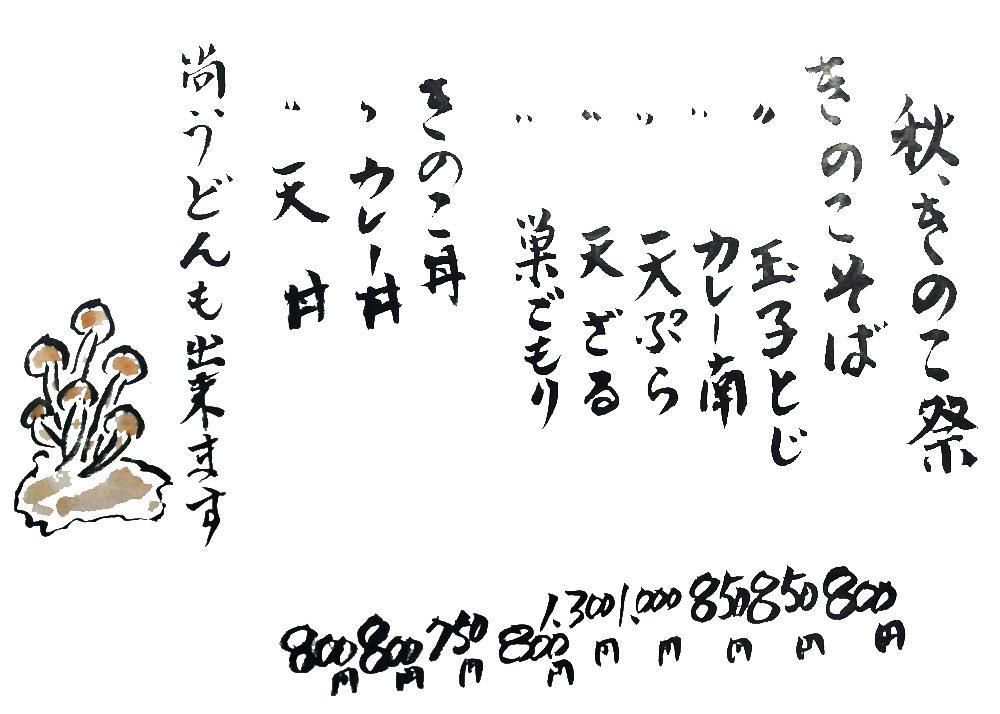 秋、きのこ祭
きのこそば 800円
〃 玉子とじ 850円
〃 カレー南 850円
〃 天ぷら 1,000円
〃 天ざる 1,300円
〃 巣ごもり 800円
きのこ丼 750円
〃 カレー丼 800円
〃 天丼 800円
尚、うどんも出来ます